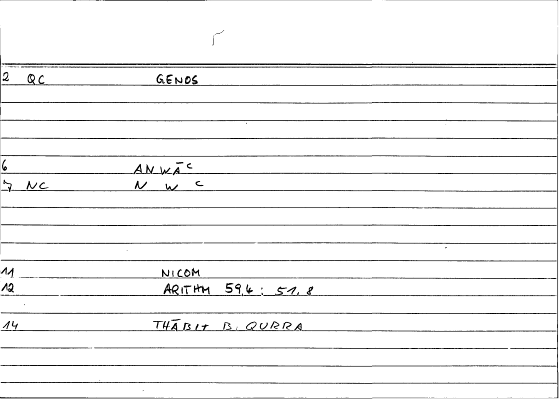 2 QC GENOS
6 ANWĀᶜ
7 NC N W ᶜ
11 NICOM
12 ARITHM 59,4 : 51,8
14 THĀBIT B. QURRA